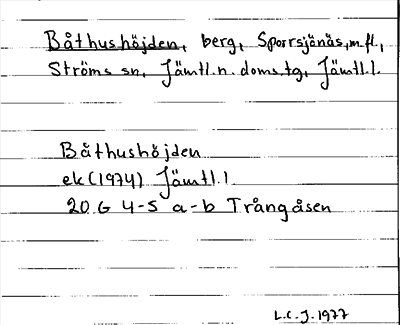 Båthushöjden, berg, Sporrsjönäs, m.fl.,
Ströms sn, Jämtl.n. doms.tg, Jämtl.l.
Båthushöjden
ek(1974) Jämtl.l
20 G 4-5 a-b Trångåsen
L.C.J. 1977